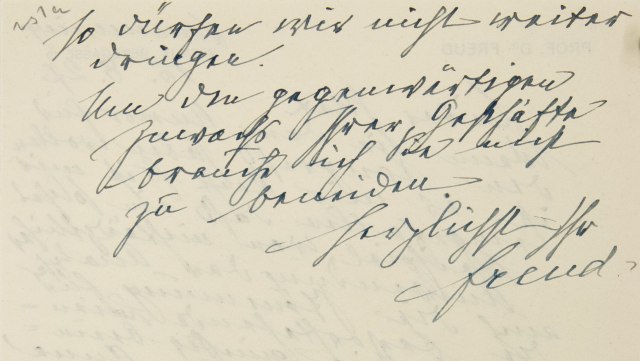 so dürfen wir nicht weiter
dringen.
Um den gegenwärtigen
Zuwachs Ihrer Geschäfte
brauche ich Sie nicht
zu beneiden.
Herzlichst Ihr
Freud.